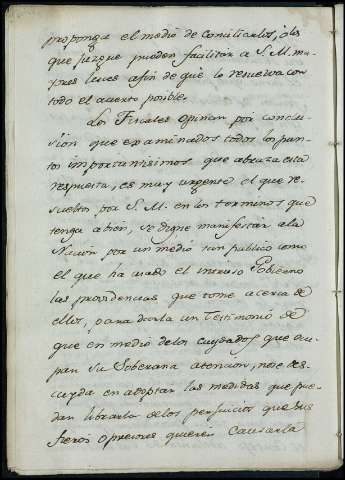 proponga el medio de conciliarlos, ó los
que juzgue pueden facilitar a S. M. ma-
yores luces afin de que lo resuelva con
todo el acierto posible.
Los Fiscales opinan por conclu-
sion que examinados todos los pun-
tos importantisimos que abraza esta
respuesta, es muy urgente el que re-
sueltos por S. M. en los terminos que
tenga abien, se digne manifestar ala
Nacion por un medio tan publico como
el que ha usado el intruso Gobierno
las providencias que tome acerca de
ellos, para darla un Testimonio de
que en medio delos cuydados que ocu-
pan su Soberana atencion, no se des-
cuyda en adoptar las medidas que pue-
dan librarla delos perjuicios que sus
fieros opresores quieren causarla